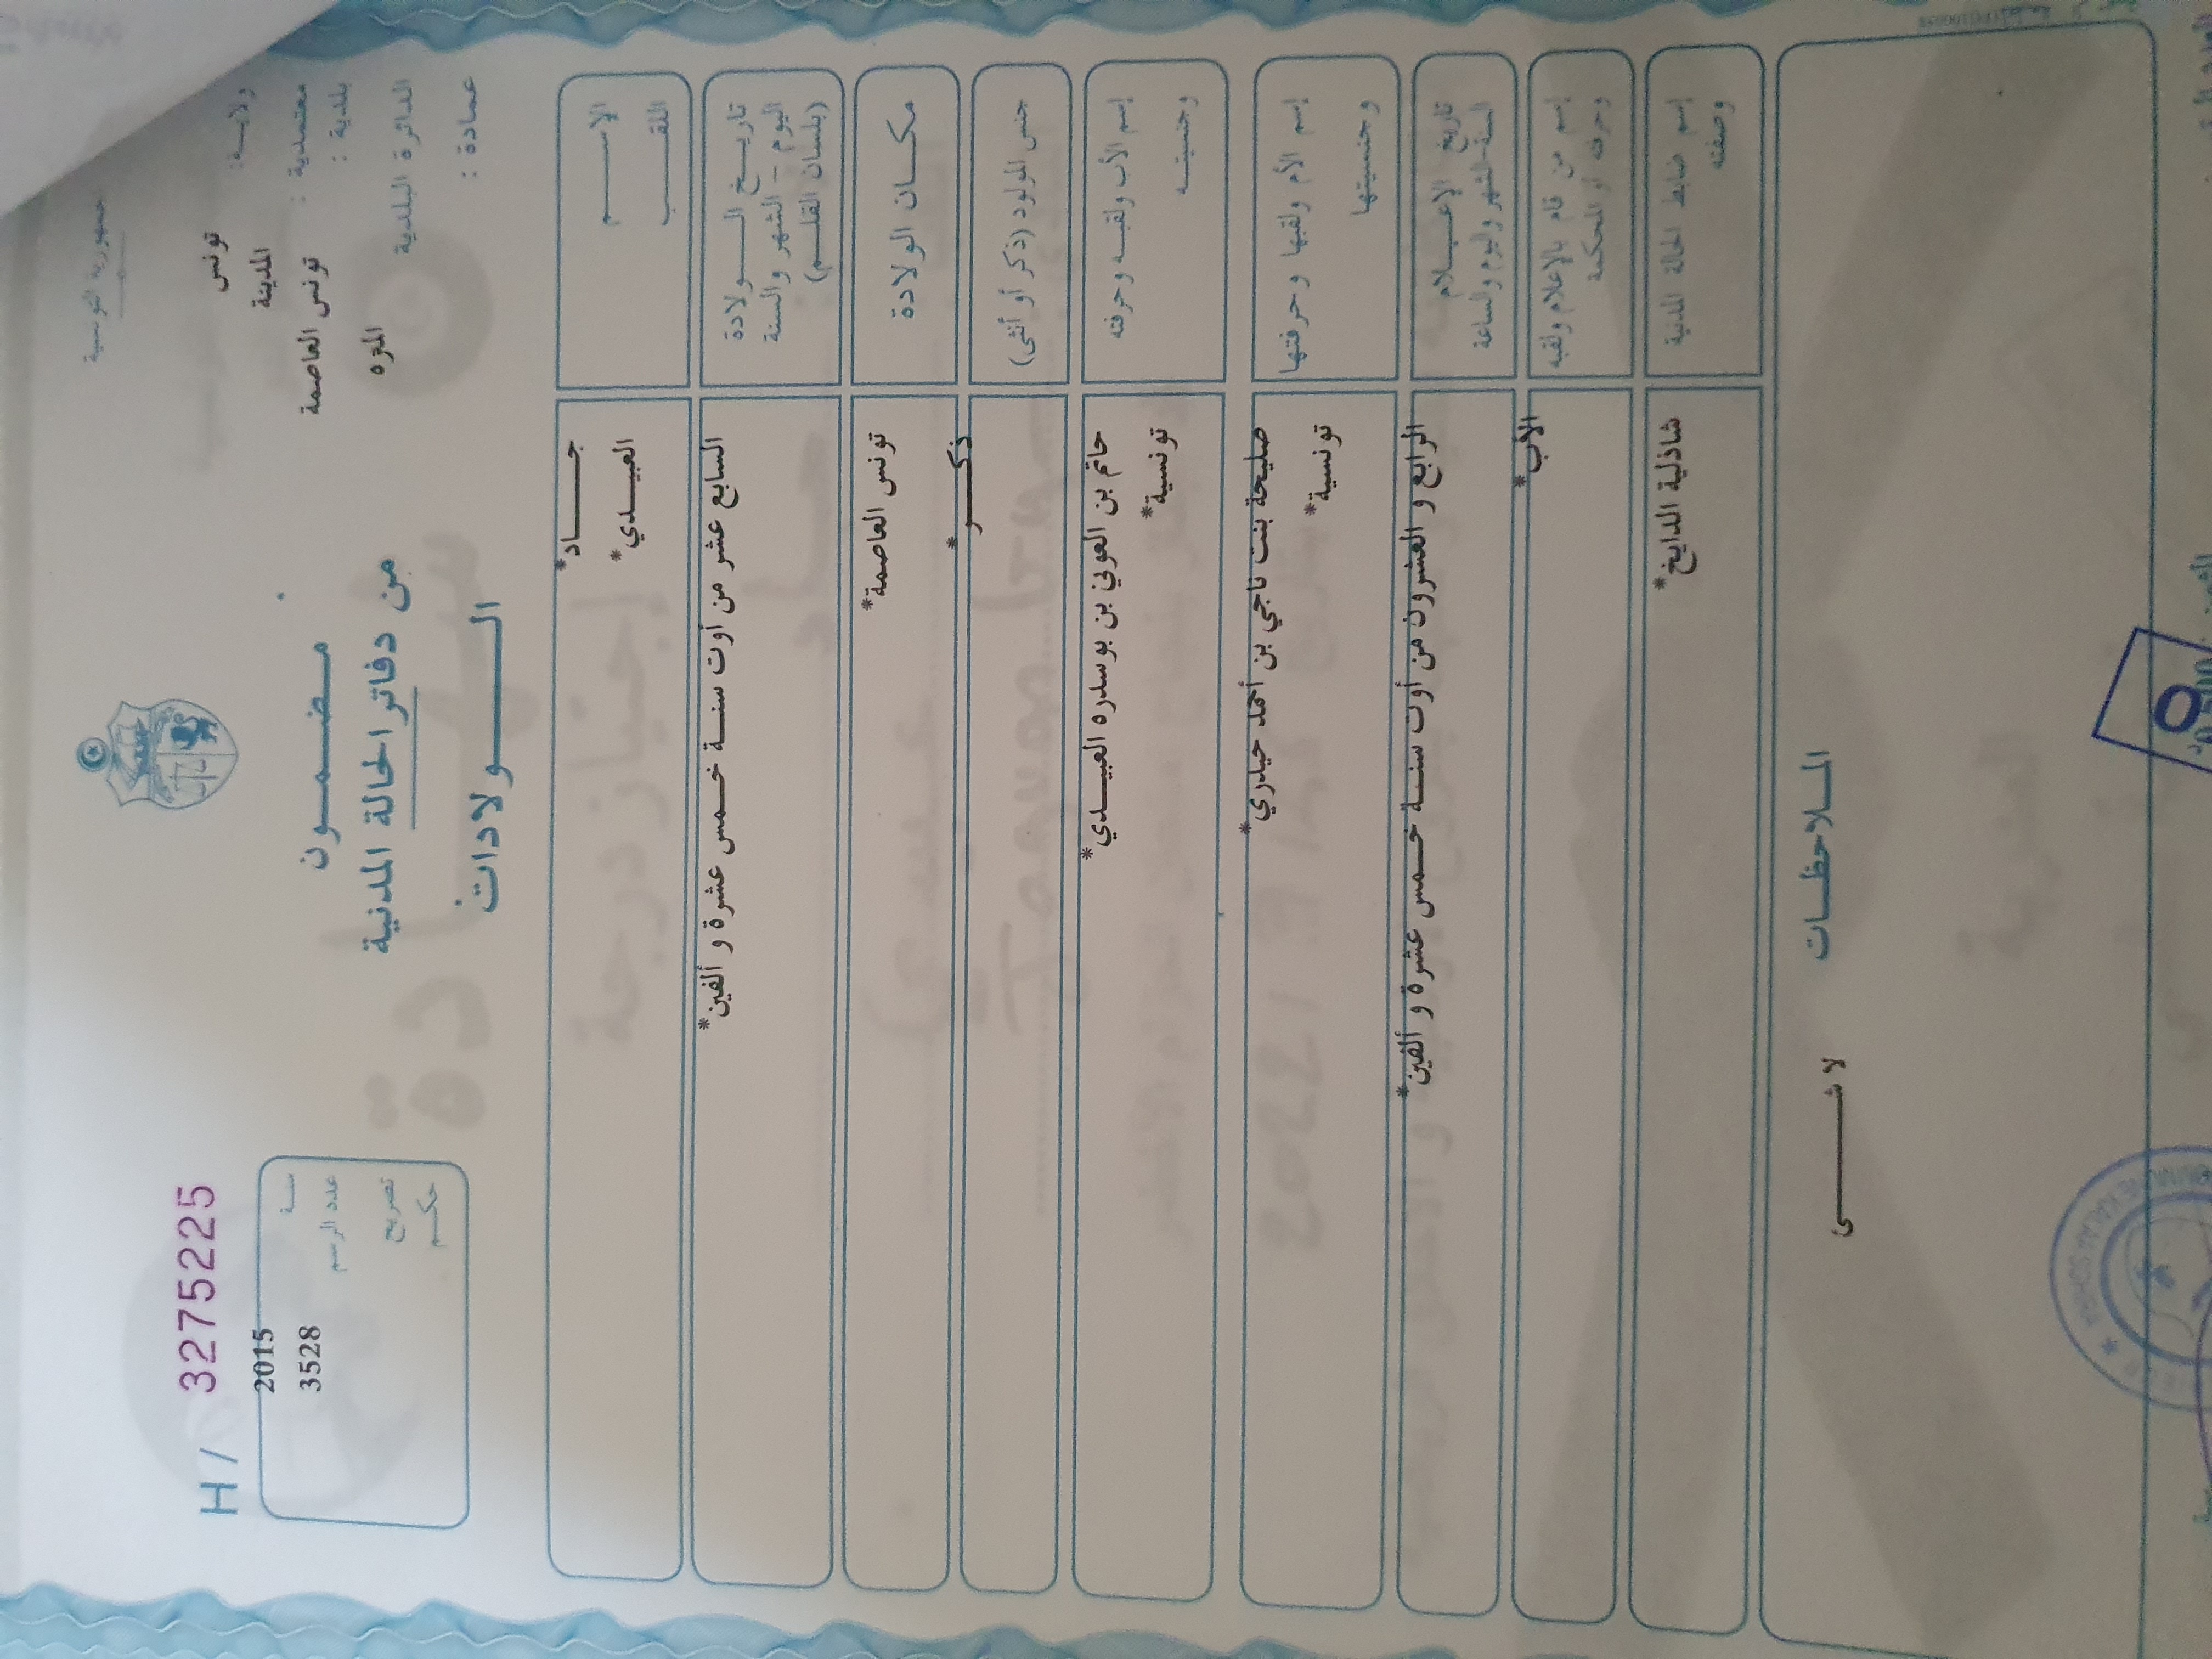 الجمهورية التونسية
ولاية : تونس
المدينة
معتمدية :
بلدية : تونس العاصمة
الدائرة البلدية المنزه
عمادة :
H / 3275225
سنة 2015
عدد الرسم 3528
تصريح
حكم
مضمون
من دفاتر الحالة المدنية
الولادات
الاسم جاد*
اللقب العبيدي*
تاريخ الولادة السابع عشر من أوت سنة خمس عشرة و ألفين*
اليوم - الشهر والسنة
(بلسان القلم)
مكان الولادة تونس العاصمة*
جنس المولود (ذكر أو أنثى) ذكر*
إسم الأب ولقبه وحرفته حاتم بن العوني بن بوسدره العبيدي*
وجنسيته تونسية*
إسم الأم ولقبها وحرفتها صليحة بنت ناجي بن أحمد حيدري*
وجنسيتها تونسية*
تاريخ الإعلام الرابع و العشرون من أوت سنة خمس عشرة و ألفين*
السنة-الشهر واليوم والساعة
إسم من قام بالإعلام ولقبه الأب*
وحرفته أو المحكمة
إسم ضابط الحالة المدنية شاذلية الدايخ*
وصفته
الملاحظات
لا شى